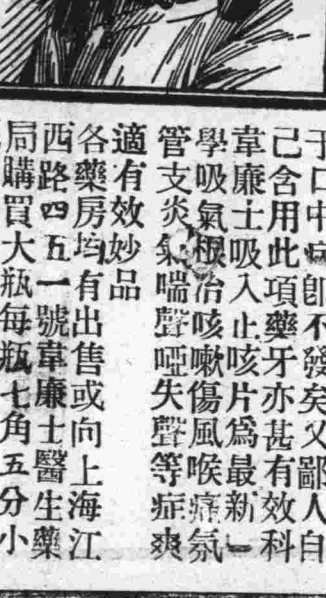 于口中病卽不發矣又鄙人自
己含用此項藥牙亦甚有效科
韋廉士吸入止咳片爲最新
學吸氣根治咳嗽傷風喉痛氛
管支炎氣喘聲啞失聲等症爽
適有效妙品
各藥房均有出售或向上海江
西路四五一號韋廉士醫生藥
局購買大瓶每瓶七角五分小